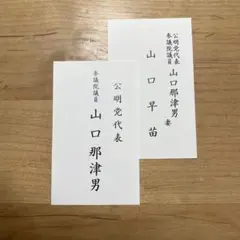 公明党代表
参議院議員
山口那津男
公明党代表
参議院議員
山口那津男
妻
山口早苗